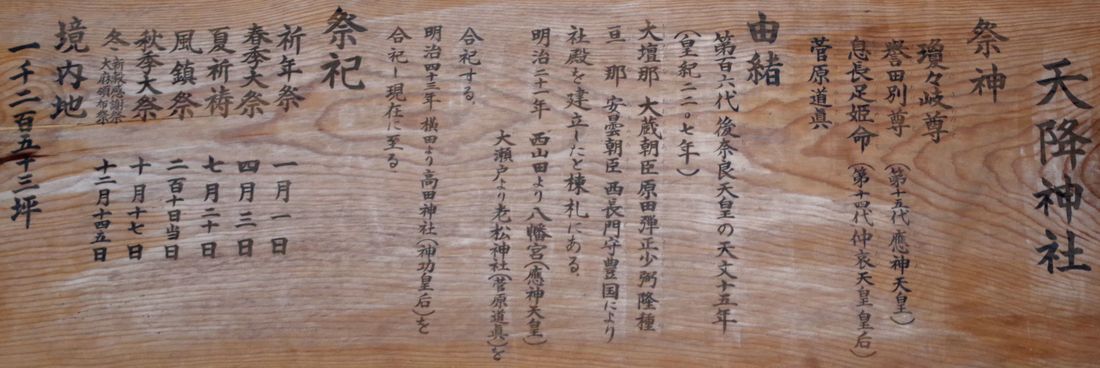 天降神社
祭神
瓊々岐尊
譽田別尊（第十五代 應神天皇）
息長足姫命（第十四代 仲哀天皇皇后）
菅原道眞
由緒
第百六代 後奈良天皇の天文十五年
（皇紀二二〇七年）
大壇那 大蔵朝臣原田弾正少弼隆種
亘 那 安曇朝臣西長門守豊国により
社殿を建立したと棟札にある。
明治二十一年 西山田より八幡宮（應神天皇）
大瀬戸より老松神社（菅原道眞）を
合祀する。
明治四十三年 横田より高田神社（神功皇后）を
合祀し現在に至る
祭祀
祈年祭 一月一日
春季大祭 四月三日
夏祈祷 七月二十日
風鎮祭 二百十日当日
秋季大祭 十月十七日
冬 新穀感謝祭 大麻頒布祭 十二月十四五日
境内地
一千二百五十三坪